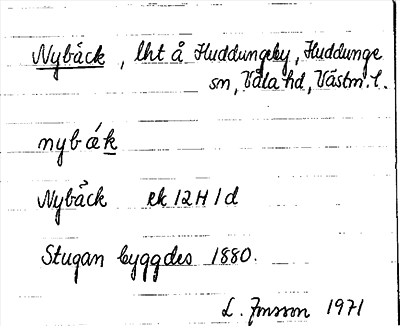 Nybäck, lht å Huddungeby, Huddunge
sn, Våla hd, Västm. l.
nybǽk
Nybäck ek 12H 1d
Stugan byggdes 1880.
L. Jonsson 1971